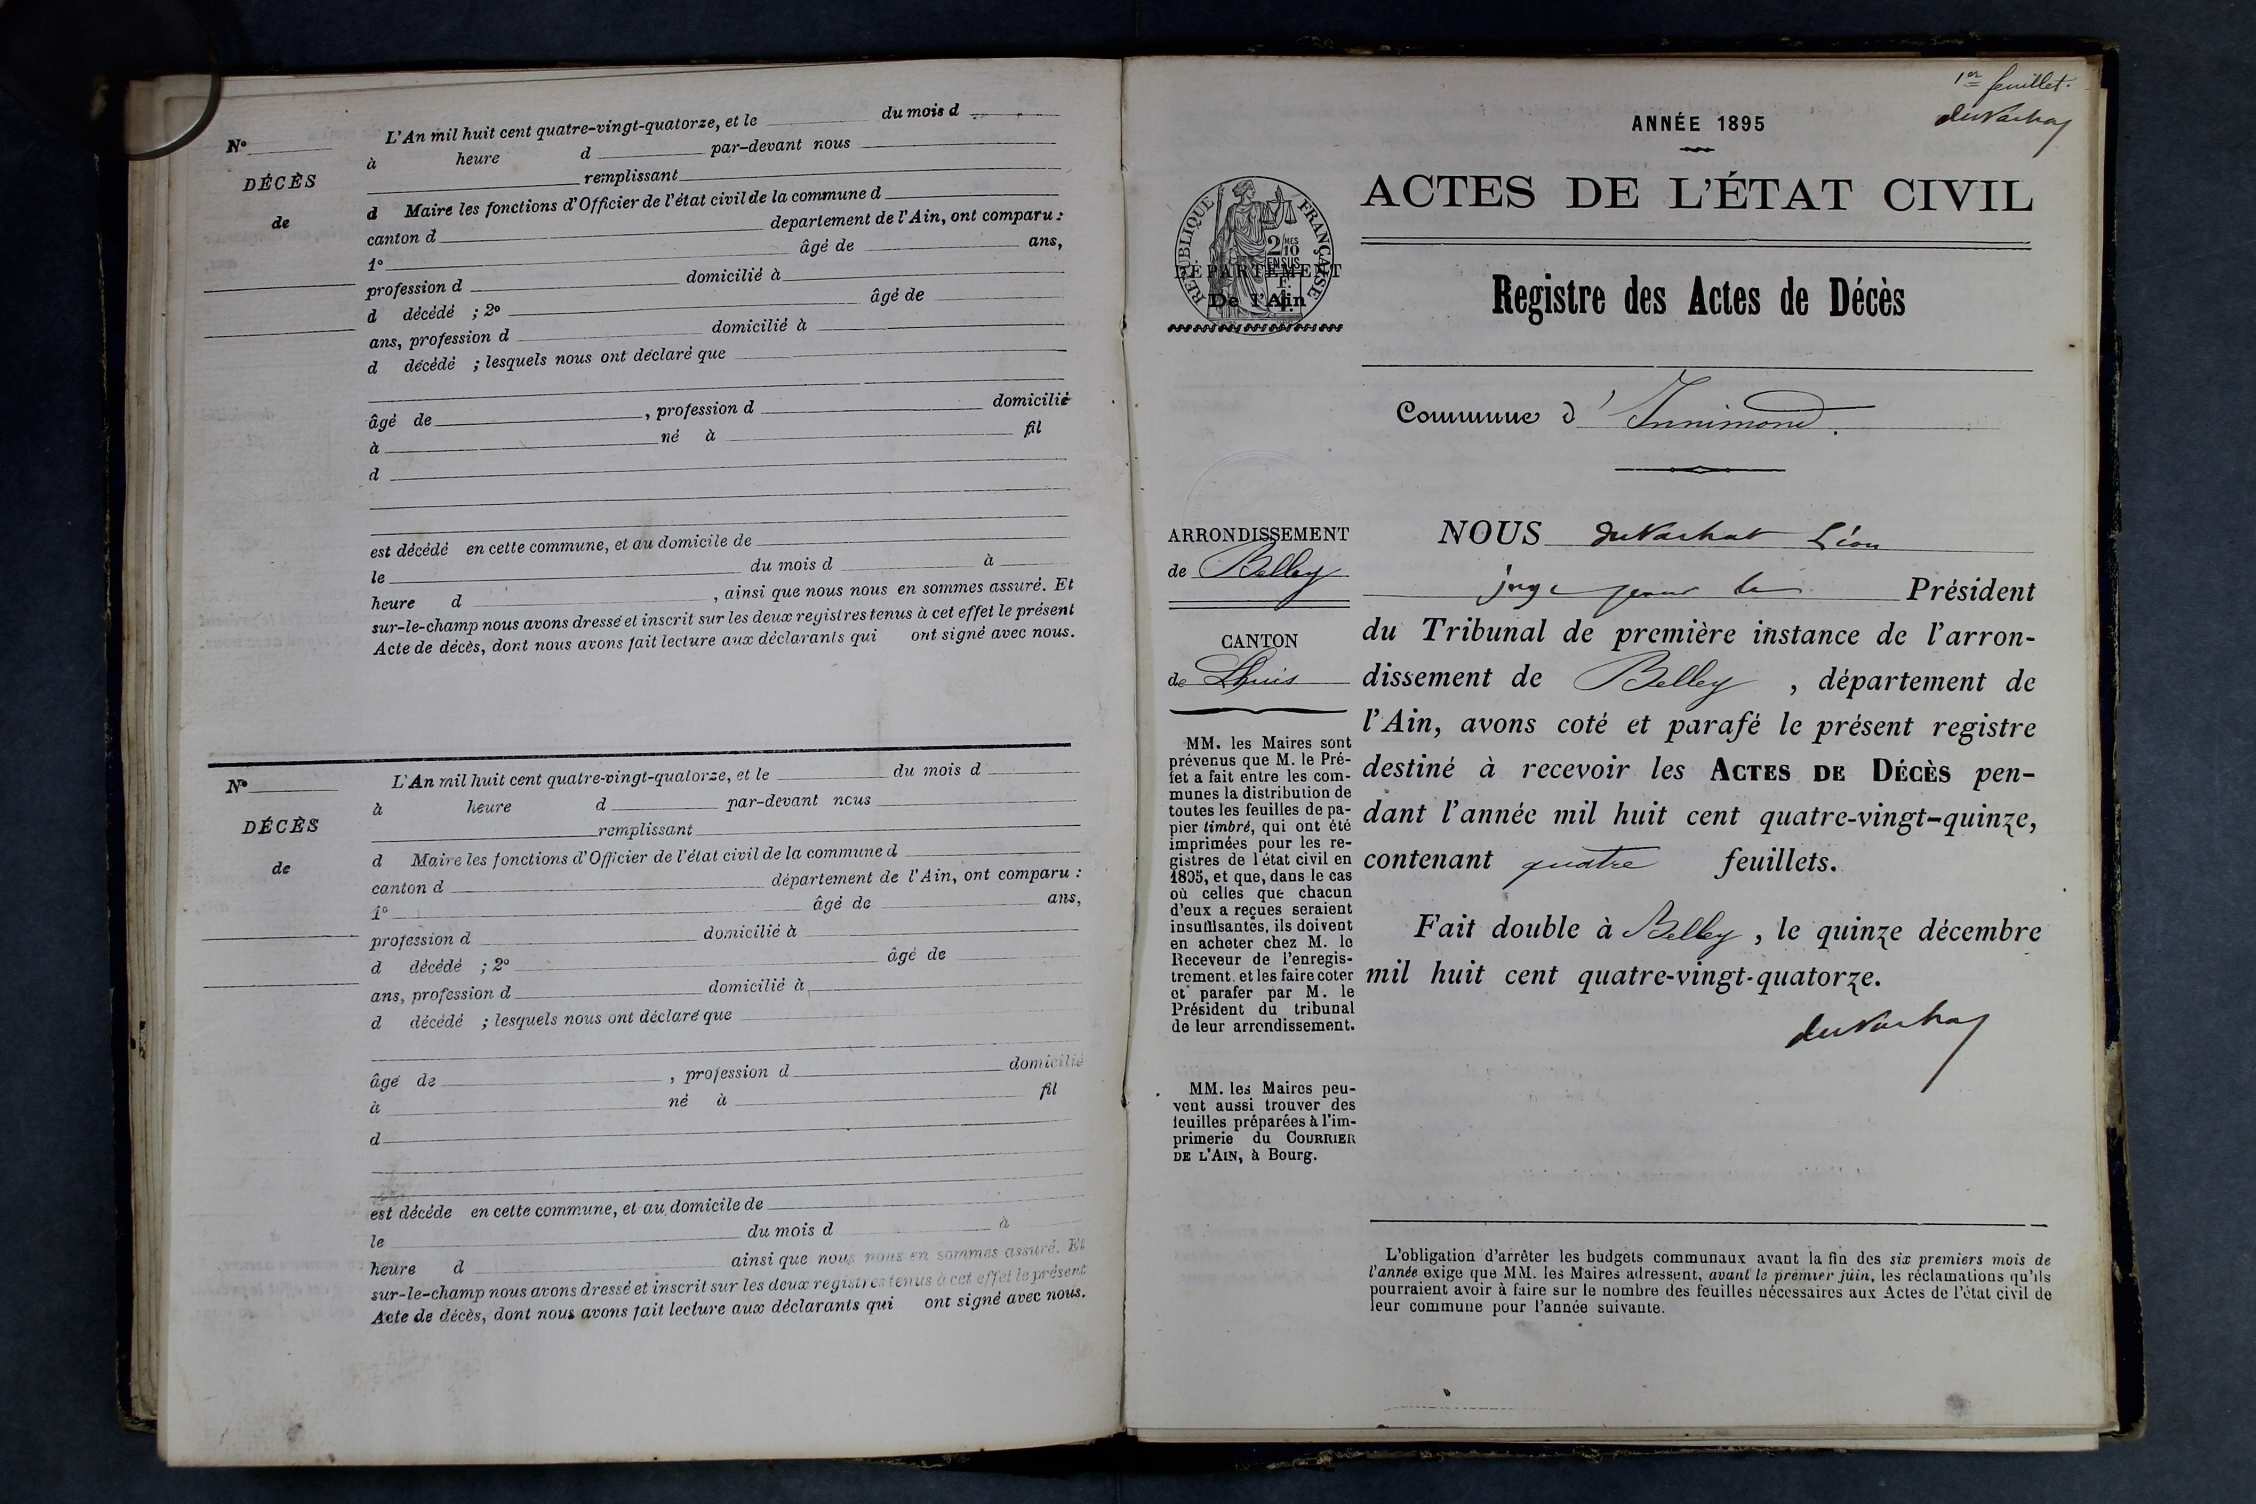 N°
DÉCÈS
de
L'An mil huit cent quatre-vingt-quatorze, et le du mois d
à heure d par-devant nous
remplissant
d Maire les fonctions d'Officier de l'état civil de la commune d
canton d departement de l'Ain, ont comparu :
1° âgé de ans,
profession d domicilié à
d décédé ; 2° âgé de
ans, profession d domicilié à
d décédé ; lesquels nous ont déclaré que
âgé de , profession d domicilié
à né à fil
d
est décédé en cette commune, et au domicile de
le du mois d à
heure d , ainsi que nous nous en sommes assuré. Et
sur-le-champ nous avons dressé et inscrit sur les deux registres tenus à cet effet le présent
Acte de décès, dont nous avons fait lecture aux déclarants qui ont signé avec nous.
N°
DÉCÈS
de
L'An mil huit cent quatre-vingt-quatorze, et le du mois d
à heure d par-devant nous
remplissant
d Maire les fonctions d'Officier de l'état civil de la commune d
canton d département de l'Ain, ont comparu :
1° âgé de ans,
profession d domicilié à
d décédé ; 2° âgé de
ans, profession d domicilié à
d décédé ; lesquels nous ont déclaré que
âgé de , profession d domicilié
à né à fil
d
est décéde en cette commune, et au domicile de
le du mois d à
heure d ainsi que nous nous en sommes assuré. Et
sur-le-champ nous avons dressé et inscrit sur les deux registres tenus à cet effet le présent
Acte de décès, dont nous avons fait lecture aux déclarants qui ont signé avec nous.
1er feuillet.
ANNÉE 1895
ACTES DE L'ÉTAT CIVIL
RÉPUBLIQUE FRANÇAISE
2 MES
10
EN SUS
DÉPARTEMENT
De l'Ain
Registre des Actes de Décès
Commune d'Innimond.
ARRONDISSEMENT
de Belley
CANTON
de Lhuis
MM. les Maires sont
prévenus que M. le Pré-
fet a fait entre les com-
munes la distribution de
toutes les feuilles de pa-
pier timbré, qui ont été
imprimées pour les re-
gistres de l'état civil en
1895, et que, dans le cas
où celles que chacun
d'eux a reçues seraient
insuffisantes, ils doivent
en acheter chez M. le
Receveur de l'enregis-
trement, et les faire coter
et parafer par M. le
Président du tribunal
de leur arrondissement.
MM. les Maires peu-
vent aussi trouver des
feuilles préparées à l'im-
primerie du COURRIER
DE L'AIN, à Bourg.
NOUS duVachat Léon
juge pour le Président
du Tribunal de première instance de l'arron-
dissement de Belley , département de
l'Ain, avons coté et parafé le présent registre
destiné à recevoir les ACTES DE DÉCÈS pen-
dant l'année mil huit cent quatre-vingt-quinze,
contenant quatre feuillets.
Fait double à Belley, le quinze décembre
mil huit cent quatre-vingt-quatorze.
duVachat
L'obligation d'arrêter les budgets communaux avant la fin des six premiers mois de
l'année exige que MM. les Maires adressent, avant le premier juin, les réclamations qu'ils
pourraient avoir à faire sur le nombre des feuilles nécessaires aux Actes de l'état civil de
leur commune pour l'année suivante.